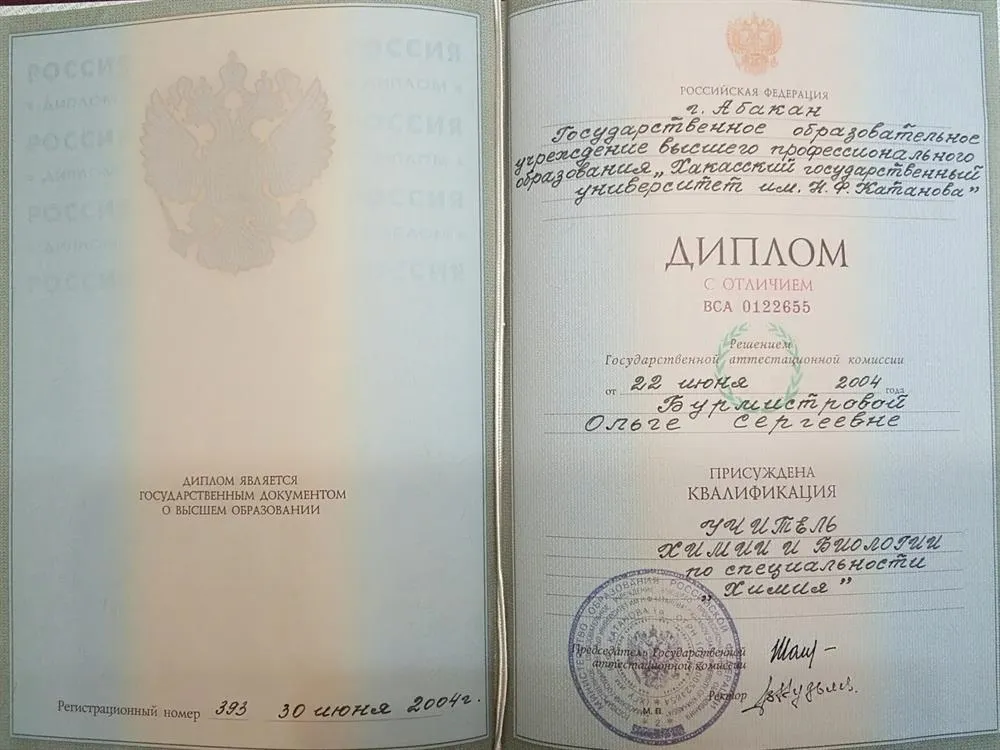 ДИПЛОМ ЯВЛЯЕТСЯ
ГОСУДАРСТВЕННЫМ ДОКУМЕНТОМ
О ВЫСШЕМ ОБРАЗОВАНИИ
Регистрационный номер 393 30 июня 2004г.
РОССИЙСКАЯ ФЕДЕРАЦИЯ
г. Абакан
Государственное образовательное
учреждение высшего профессионального
образования „Хакасский государственный
университет им. Н.Ф.Катанова”
ДИПЛОМ
С ОТЛИЧИЕМ
ВСА 0122655
Решением
Государственной аттестационной комиссии
от 22 июня 2004 года
Бурмистровой
Ольге Сергеевне
ПРИСУЖДЕНА
КВАЛИФИКАЦИЯ
УЧИТЕЛЬ
ХИМИИ И БИОЛОГИИ
по специальности
„Химия”
Председатель Государственной
аттестационной комиссии
Ректор
М.П.